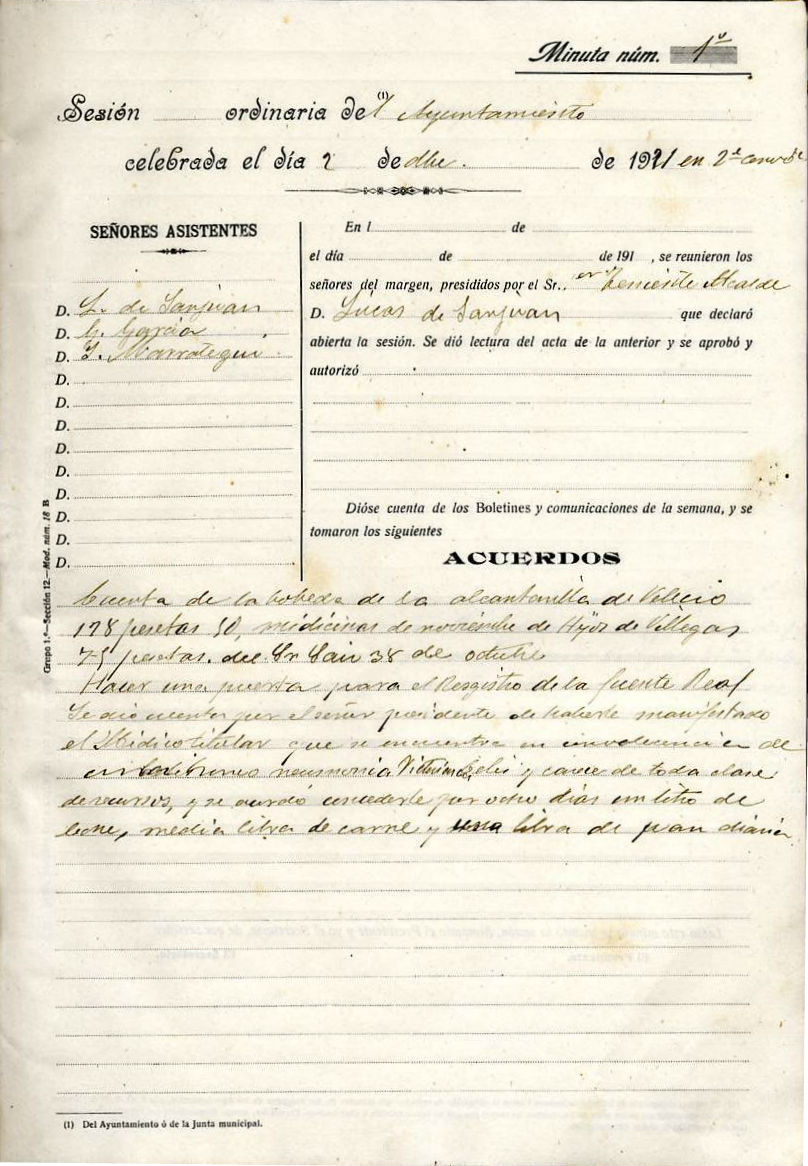 Minuta núm. 1º
Sesión ordinaria de (1) l Ayuntamiento
celebrada el día 2 de dbe. de 1921 en 2ª
SEÑORES ASISTENTES
D. L. de Sanjuan
D. G. García
D. Marrategui
D.
D.
D.
D.
D.
D.
D.
D.
D.
En l de
el día de de 191 , se reunieron los
señores del margen, presididos por el Sr. er Teniente Alcalde
D. Lucas de Sanjuan que declaró
abierta la sesión. Se dió lectura del acta de la anterior y se aprobó y
autorizó
Dióse cuenta de los Boletines y comunicaciones de la semana, y se
tomaron los siguientes
ACUERDOS
Cuenta de la bobeda de la alcantarilla de Velecio
178 pesetas 50, medicinas de noviembre de Hijos de Villegas
75 pesetas. del Sr San 38 de octubre
Hacer una puerta para el Resgistro de la fuente Real
Se dio cuenta por el señor presidente de haberle manifestado
el Médico titular que se encuentra en convalecencia de
neumonia y carece de toda clase
de recursos, y se acordó concederle por ocho días un litro de
leche, media libra de carne y una libra de pan diaria
Grupo 1.º—Sección 12.—Mod. núm. 18 B
(1) Del Ayuntamiento ó de la Junta municipal.